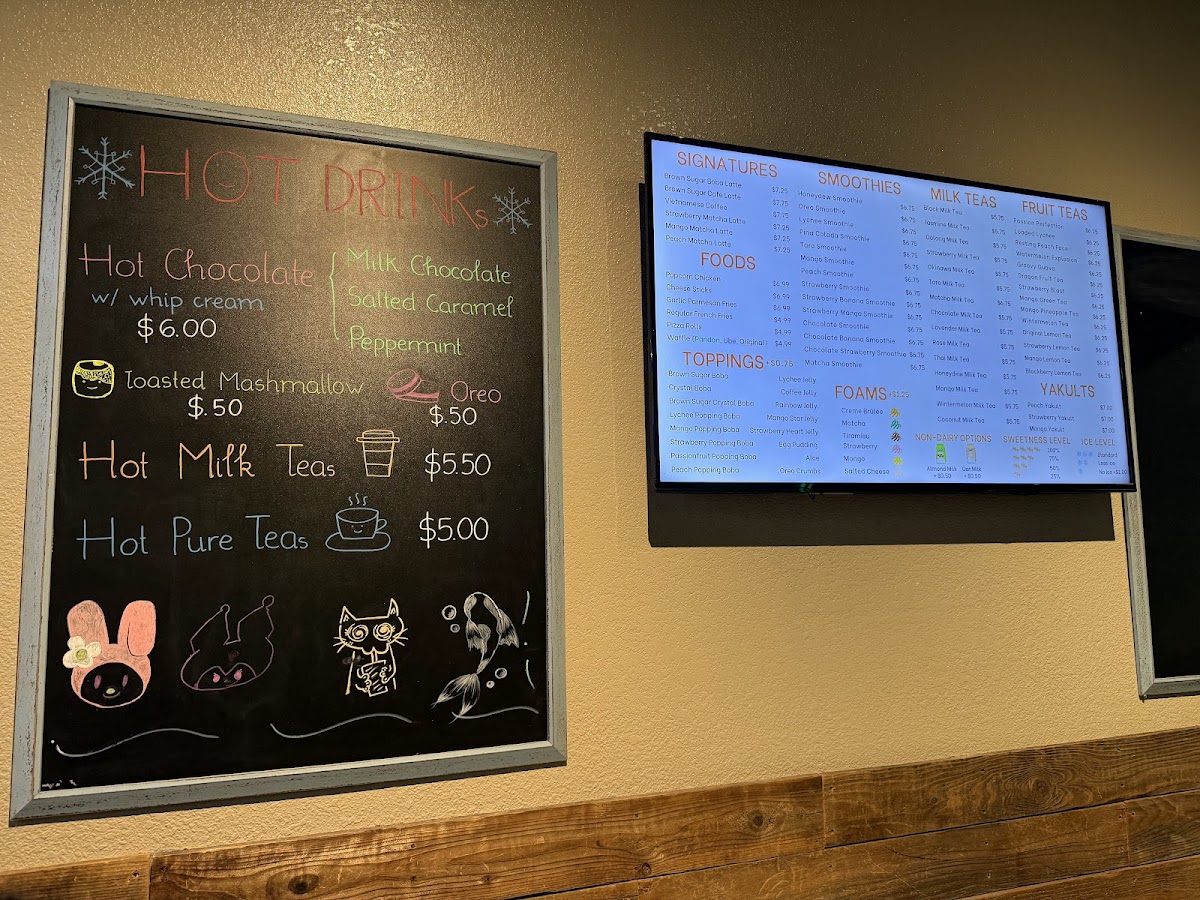 HOT DRINKs
Hot Chocolate
w/ whip cream
$6.00
Milk Chocolate
Salted Caramel
Peppermint
Toasted Mashmallow
$.50
Oreo
$.50
Hot Milk Teas $5.50
Hot Pure Teas $5.00
SIGNATURES
Brown Sugar Boba Latte $7.25
Brown Sugar Cafe Latte $7.75
Vietnamese Coffee $7.75
Strawberry Matcha Latte $7.25
Mango Matcha Latte $7.25
Peach Matcha Latte $7.25
FOODS
Popcorn Chicken $6.99
Cheese Sticks $6.99
Garlic Parmesan Fries $6.99
Regular French Fries $4.99
Pizza Rolls $4.99
Waffle (Pandan, Ube, Original) $4.99
TOPPINGS +$0.75
Brown Sugar Boba
Crystal Boba
Brown Sugar Crystal Boba
Lychee Popping Boba
Mango Popping Boba
Strawberry Popping Boba
Passionfruit Popping Boba
Peach Popping Boba
Lychee Jelly
Coffee Jelly
Rainbow Jelly
Mango Star Jelly
Strawberry Heart Jelly
Egg Pudding
Aloe
Oreo Crumbs
SMOOTHIES
Honeydew Smoothie $6.75
Oreo Smoothie $6.75
Lychee Smoothie $6.75
Pina Colada Smoothie $6.75
Taro Smoothie $6.75
Mango Smoothie $6.75
Peach Smoothie $6.75
Strawberry Smoothie $6.75
Strawberry Banana Smoothie $6.75
Strawberry Mango Smoothie $6.75
Chocolate Smoothie $6.75
Chocolate Banana Smoothie $6.75
Chocolate Strawberry Smoothie $6.75
Matcha Smoothie $6.75
FOAMS +$1.25
Creme Brûlée
Matcha
Tiramisu
Strawberry
Mango
Salted Cheese
MILK TEAS
Black Milk Tea $5.75
Jasmine Milk Tea $5.75
Oolong Milk Tea $5.75
Strawberry Milk Tea $5.75
Okinawa Milk Tea $5.75
Taro Milk Tea $5.75
Matcha Milk Tea $5.75
Chocolate Milk Tea $5.75
Lavender Milk Tea $5.75
Rose Milk Tea $5.75
Thai Milk Tea $5.75
Honeydew Milk Tea $5.75
Mango Milk Tea $5.75
Wintermelon Milk Tea $5.75
Coconut Milk Tea $5.75
NON-DAIRY OPTIONS
Almond Milk
+$0.50
Oat Milk
+$0.50
FRUIT TEAS
Passion Perfection $6.25
Loaded Lychee $6.25
Resting Peach Face $6.25
Watermelon Explosion $6.25
Groovy Guava $6.25
Dragon Fruit Tea $6.25
Strawberry Blast $6.25
Mango Green Tea $6.25
Mango Pineapple Tea $6.25
Wintermelon Tea $6.25
Original Lemon Tea $6.25
Strawberry Lemon Tea $6.25
Mango Lemon Tea $6.25
Blackberry Lemon Tea $6.25
YAKULTS
Peach Yakult $7.00
Strawberry Yakult $7.00
Mango Yakult $7.00
SWEETNESS LEVEL
100%
75%
50%
25%
ICE LEVEL
Standard
Less Ice
No Ice +$1.00